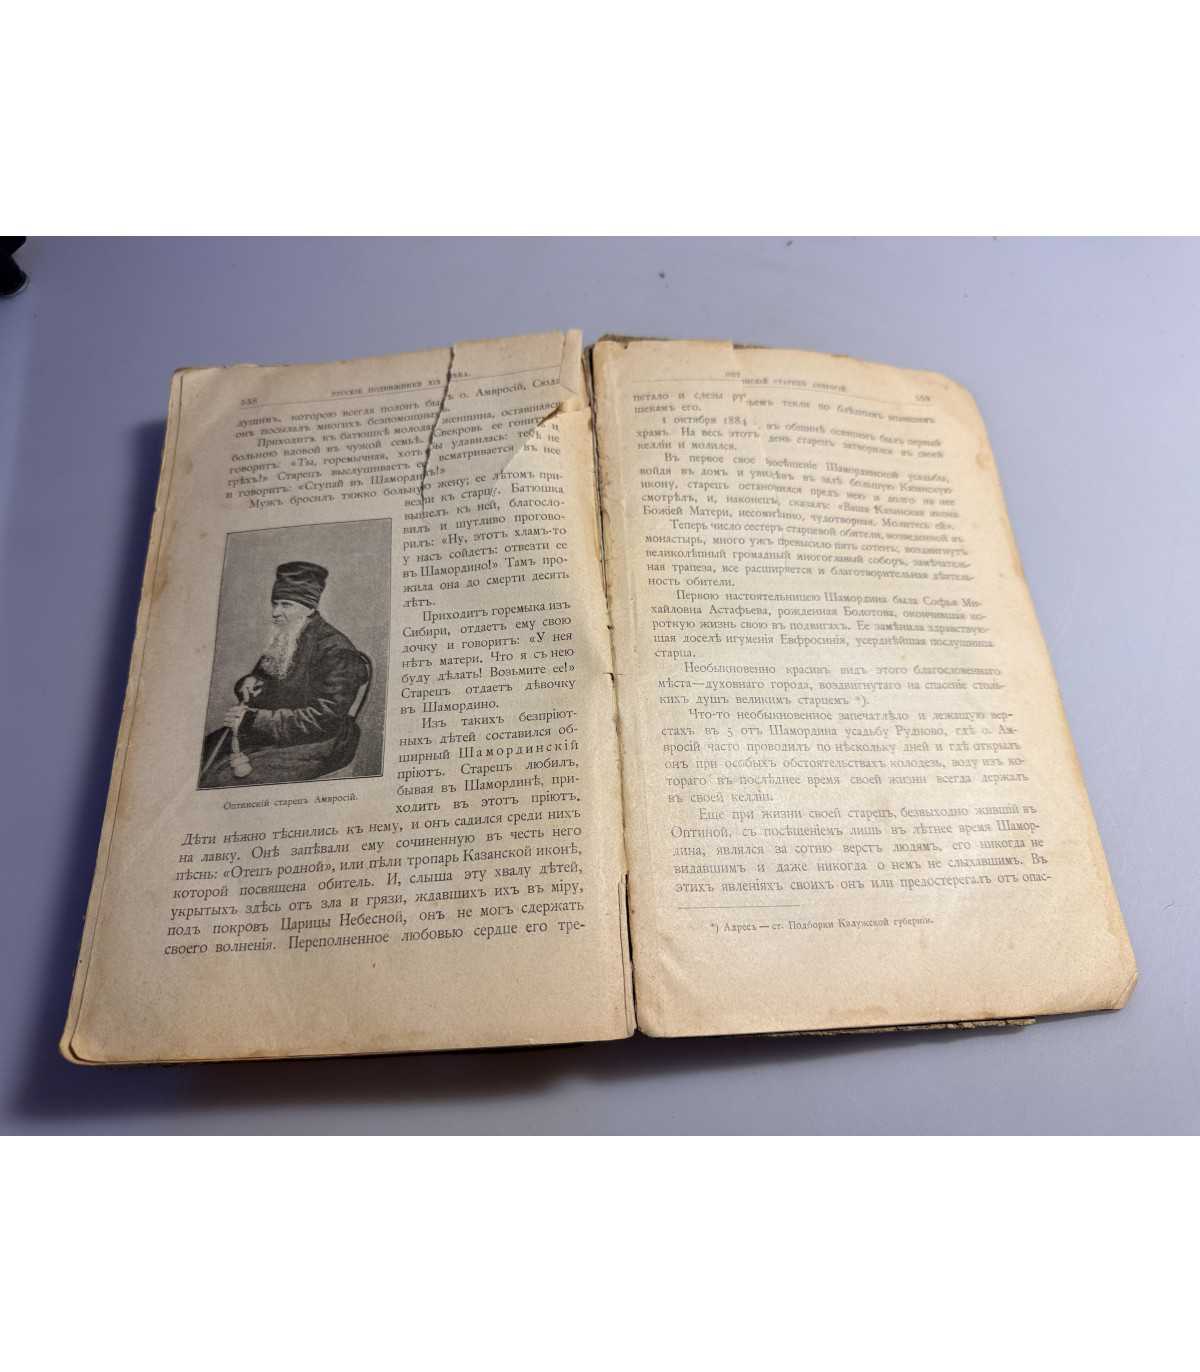 558
РУССКІЕ ПОДВИЖНИКИ XIX ВѢКА.
душии, которою всегда полонъ былъ о. Амвросій, Сюда
онъ посылалъ многихъ безпомощныхъ.
Приходитъ къ батюшкѣ молодая женщина, оставшаяся
больною вдовой въ чужой семьѣ. Свекровь ее гонитъ и
говоритъ: «Ты, горемычная, хоть бы удавилась: тебѣ не
грѣхъ!» Старецъ выслушиваетъ ее, всматривается въ нее
и говоритъ: «Ступай въ Шамордино!»
Мужъ бросилъ тяжко больную жену; ее лѣтомъ при-
везли къ старцу. Батюшка
вышелъ къ ней, благосло-
вилъ и шутливо прогово-
рилъ: «Ну, этотъ хламъ-то
у насъ сойдетъ: отвезти ее
въ Шамордино!» Тамъ про-
жила она до смерти десять
лѣтъ.
Приходитъ горемыка изъ
Сибири, отдаетъ ему свою
дочку и говоритъ: «У нея
нѣтъ матери. Что я съ нею
буду дѣлать! Возьмите ее!»
Старецъ отдаетъ дѣвочку
въ Шамордино.
Изъ такихъ безпріют-
ныхъ дѣтей составился об-
ширный Шамординскій
пріютъ. Старецъ любилъ,
бывая въ Шамординѣ, при-
ходить въ этотъ пріютъ.
Оптинскій старецъ Амвросій.
Дѣти нѣжно тѣснились къ нему, и онъ садился среди нихъ
на лавку. Онѣ запѣвали ему сочиненную въ честь него
пѣснь: «Отецъ родной», или пѣли тропарь Казанской иконѣ,
которой посвящена обитель. И, слыша эту хвалу дѣтей,
укрытыхъ здѣсь отъ зла и грязи, ждавшихъ ихъ въ міру,
подъ покровъ Царицы Небесной, онъ не могъ сдержать
своего волненія. Переполненное любовью сердце его тре-
ОПТ
ИНСКІЙ СТАРЕЦЪ АМВРОСІЙ.
559
петало и слезы ручьемъ текли по блѣднымъ впавшимъ
щекамъ его.
1 октября 1884 въ общинѣ освященъ былъ первый
храмъ. На весь этотъ день старецъ затворился въ своей
келліи и молился.
Въ первое свое посѣщеніе Шамординской усадьбы,
войдя въ домъ и увидѣвъ въ залѣ большую Казанскую
икону, старецъ остановился предъ нею и долго на нее
смотрѣлъ, и, наконецъ, сказалъ: «Ваша Казанская икона
Божіей Матери, несомнѣнно, чудотворная. Молитесь ей».
Теперь число сестеръ старцевой обители, возведенной въ
монастырь, много ужъ превысило пять сотенъ; воздвигнутъ
великолѣпный громадный многоглавый соборъ, замѣчатель-
ная трапеза, все расширяется и благотворительная дѣятель-
ность обители.
Первою настоятельницею Шамордина была Софья Ми-
хайловна Астафьева, рожденная Болотова, окончившая ко-
роткую жизнь свою въ подвигахъ. Ее замѣнила здравствую-
щая доселѣ игуменія Евфросинія, усерднѣйшая послушница
старца.
Необыкновенно красивъ видъ этого благословеннаго
мѣста—духовнаго города, воздвигнутаго на спасеніе столь-
кихъ душъ великимъ старцемъ *).
Что-то необыкновенное запечатлѣло и лежащую вер-
стахъ въ 5 отъ Шамордина усадьбу Рудново, гдѣ о. Ам-
вросій часто проводилъ по нѣскольку дней и гдѣ открылъ
онъ при особыхъ обстоятельствахъ колодезь, воду изъ ко-
тораго въ послѣднее время своей жизни всегда держалъ
въ своей келліи.
Еще при жизни своей старецъ, безвыходно жившій въ
Оптиной, съ посѣщеніемъ лишь въ лѣтнее время Шамор-
дина, являлся за сотню верстъ людямъ, его никогда не
видавшимъ и даже никогда о немъ не слыхавшимъ. Въ
этихъ явленіяхъ своихъ онъ или предостерегалъ отъ опас-
*) Адресъ — ст. Подборки Калужской губерніи.